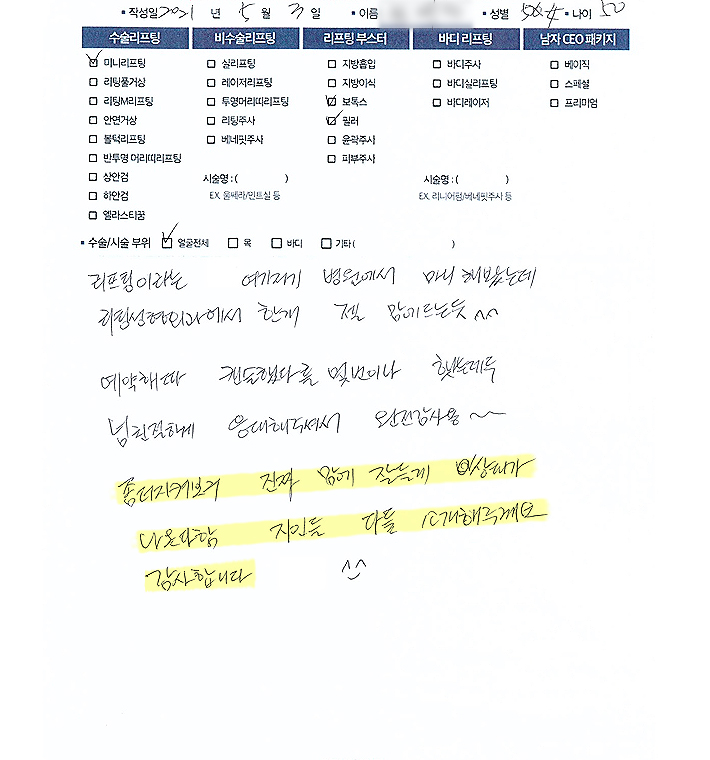 ▪ 작성일 2021 년 5 월 3 일 ▪ 이름 ▪ 성별 ▪ 나이 50
수술리프팅 비수술리프팅 리프팅 부스터 바디 리프팅 남자 CEO 패키지
미니리프팅 실리프팅 지방흡입 바디주사 베이직
리팅풀거상 레이저리프팅 지방이식 바디실리프팅 스페셜
리팅M리프팅 투명머리띠리프팅 보톡스 바디레이저 프리미엄
안면거상 리팅주사 필러
볼턱리프팅 베네핏주사 윤곽주사
반투명 머리띠리프팅 피부주사
상안검 시술명 : ( ) 시술명 : ( )
하안검 EX. 울쎄라/민트실 등 EX. 리니어펌/베네핏주사 등
엘라스티꿈
▪ 수술/시술 부위 얼굴전체 목 바디 기타 ( )
리프팅이라는 여기저기 병원에서 마니 해봤는데
리팅성형외과에서 한게 젤 맘에드는듯 ^^
예약해따 캔슬했다를 몇번이나 햇는데두
넘친절하게 응대해주셔서 완전감사용 ~~
좀더지켜보거 진짜 맘에 잘들게 이상태가
나온다함 지인들 다들 소개해주께요
감사합니다 ^^